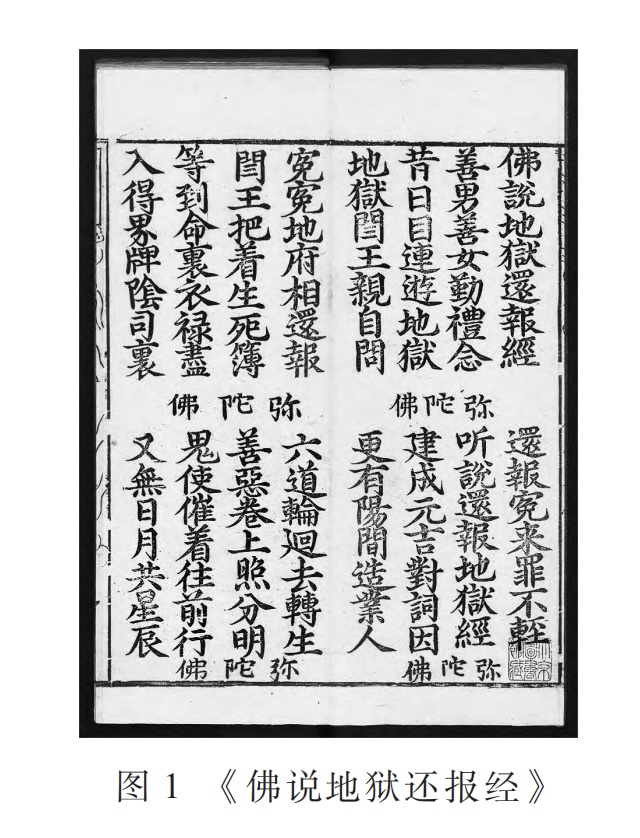 佛說地獄還報經 還報寃来罪不輊
善男善女勤禮念 听說還報地獄經
昔日目連遊地獄 建成元吉對詞因
地獄閆王親自問 更有陽間造業人
弥陀佛
弥陀佛
寃寃地府相還報 六道輪迴去轉生
閆王把着生死簿 善惡卷上照分明
等到命裏衣禄盡 鬼使催着往前行
入得界牌陰司裏 又無日月共星辰
弥陀佛
弥陀佛
图 1 《佛说地狱还报经》